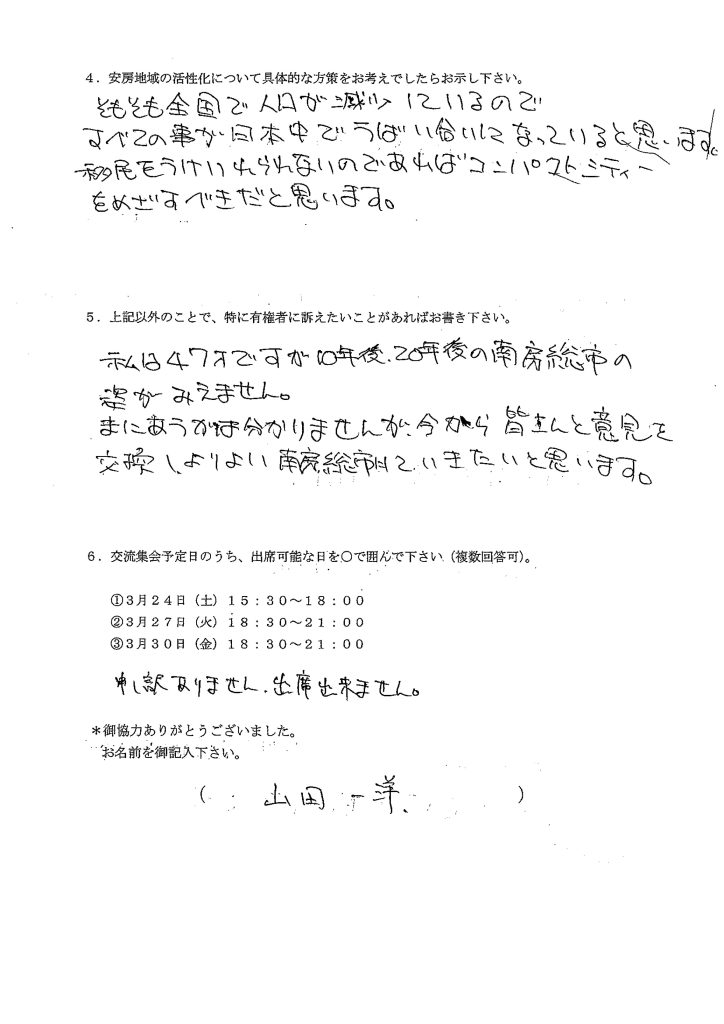 ４．安房地域の活性化について具体的な方策をお考えでしたらお示し下さい。
そもそも全国で人口が減少しているので
すべての事が日本中でうばい合いになっていると思います。
移民をうけいれられないのであればコンパストシティー
をめざすべきだと思います。
５．上記以外のことで、特に有権者に訴えたいことがあればお書き下さい。
私は47才ですが10年後、20年後の南房総市の
姿がみえません。
まにあうかは分かりませんが、今から皆さんと意見を
交換しよりよい南房総市にしていきたいと思います。
６．交流集会予定日のうち、出席可能な日を〇で囲んで下さい（複数回答可）。
①３月２４日（土）１５：３０～１８：００
②３月２７日（火）１８：３０～２１：００
③３月３０日（金）１８：３０～２１：００
申し訳ありません、出席出来ません。
＊御協力ありがとうございました。
お名前を御記入下さい。
（ 山田 一洋 ）